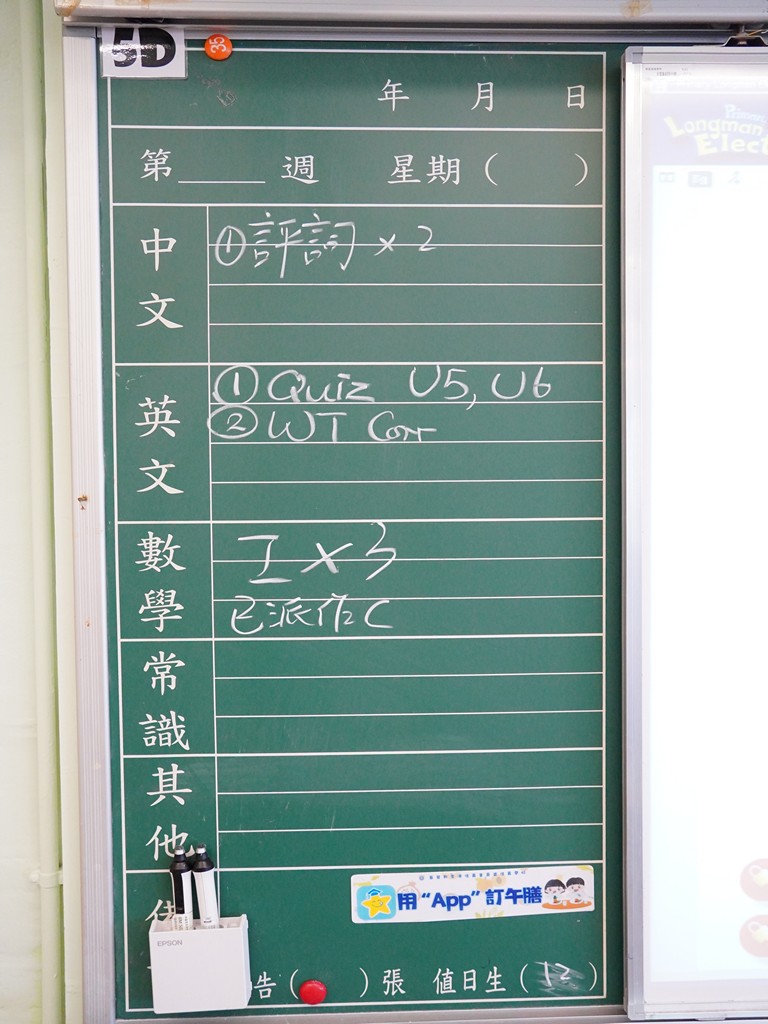 5D
35
年 月 日
第____週 星期( )
中文
①評詞 × 2
英文
① Quiz U5, U6
② WT Corr
數學
工 × 3
已派作C
常識
其他
用“App”訂午膳
EPSON
告( )張 值日生(12)
Longman
Elect